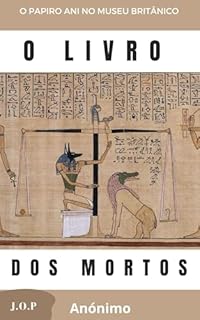 O PAPIRO ANI NO MUSEU BRITÂNICO
O LIVRO
DOS MORTOS
J.O.P
Anónimo